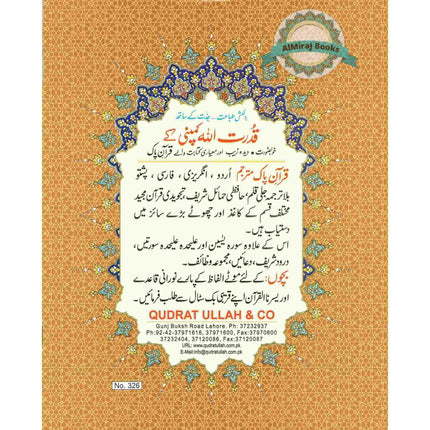 AlMiraj Books
دلکش طباعت... جدت کے ساتھ
قدرت اللہ کمپنی کے
خوبصورت • دیدہ زیب اور معیاری کتابت والے قرآن پاک
قرآن پاک مترجم اُردو، انگریزی، فارسی، پشتو
بلا ترجمہ جلی قلم، حافظی حمائل شریف، تجویدی قرآن مجید
مختلف قسم کے کاغذ اور چھوٹے بڑے سائز میں
دستیاب ہیں۔
اس کے علاوہ سورہ یٰسین اور علیحدہ علیحدہ سورتیں،
درود شریف، دعائیں، مجموعہ وظائف۔
بچوں: کے لئے موٹے الفاظ کے پارے نورانی قاعدے
اور یسرنا القرآن اپنے قریبی بک سٹال سے طلب فرمائیں۔
QUDRAT ULLAH & CO
Gunj Buksh Road Lahore. Ph: 37232937
Ph:92-42-37971618, 37971600, Fax:37970600
37232404, 37120086, Fax:37120087
URL: www.qudratullah.com.pk
E-Mail:info@qudratullah.com.pk
No. 326